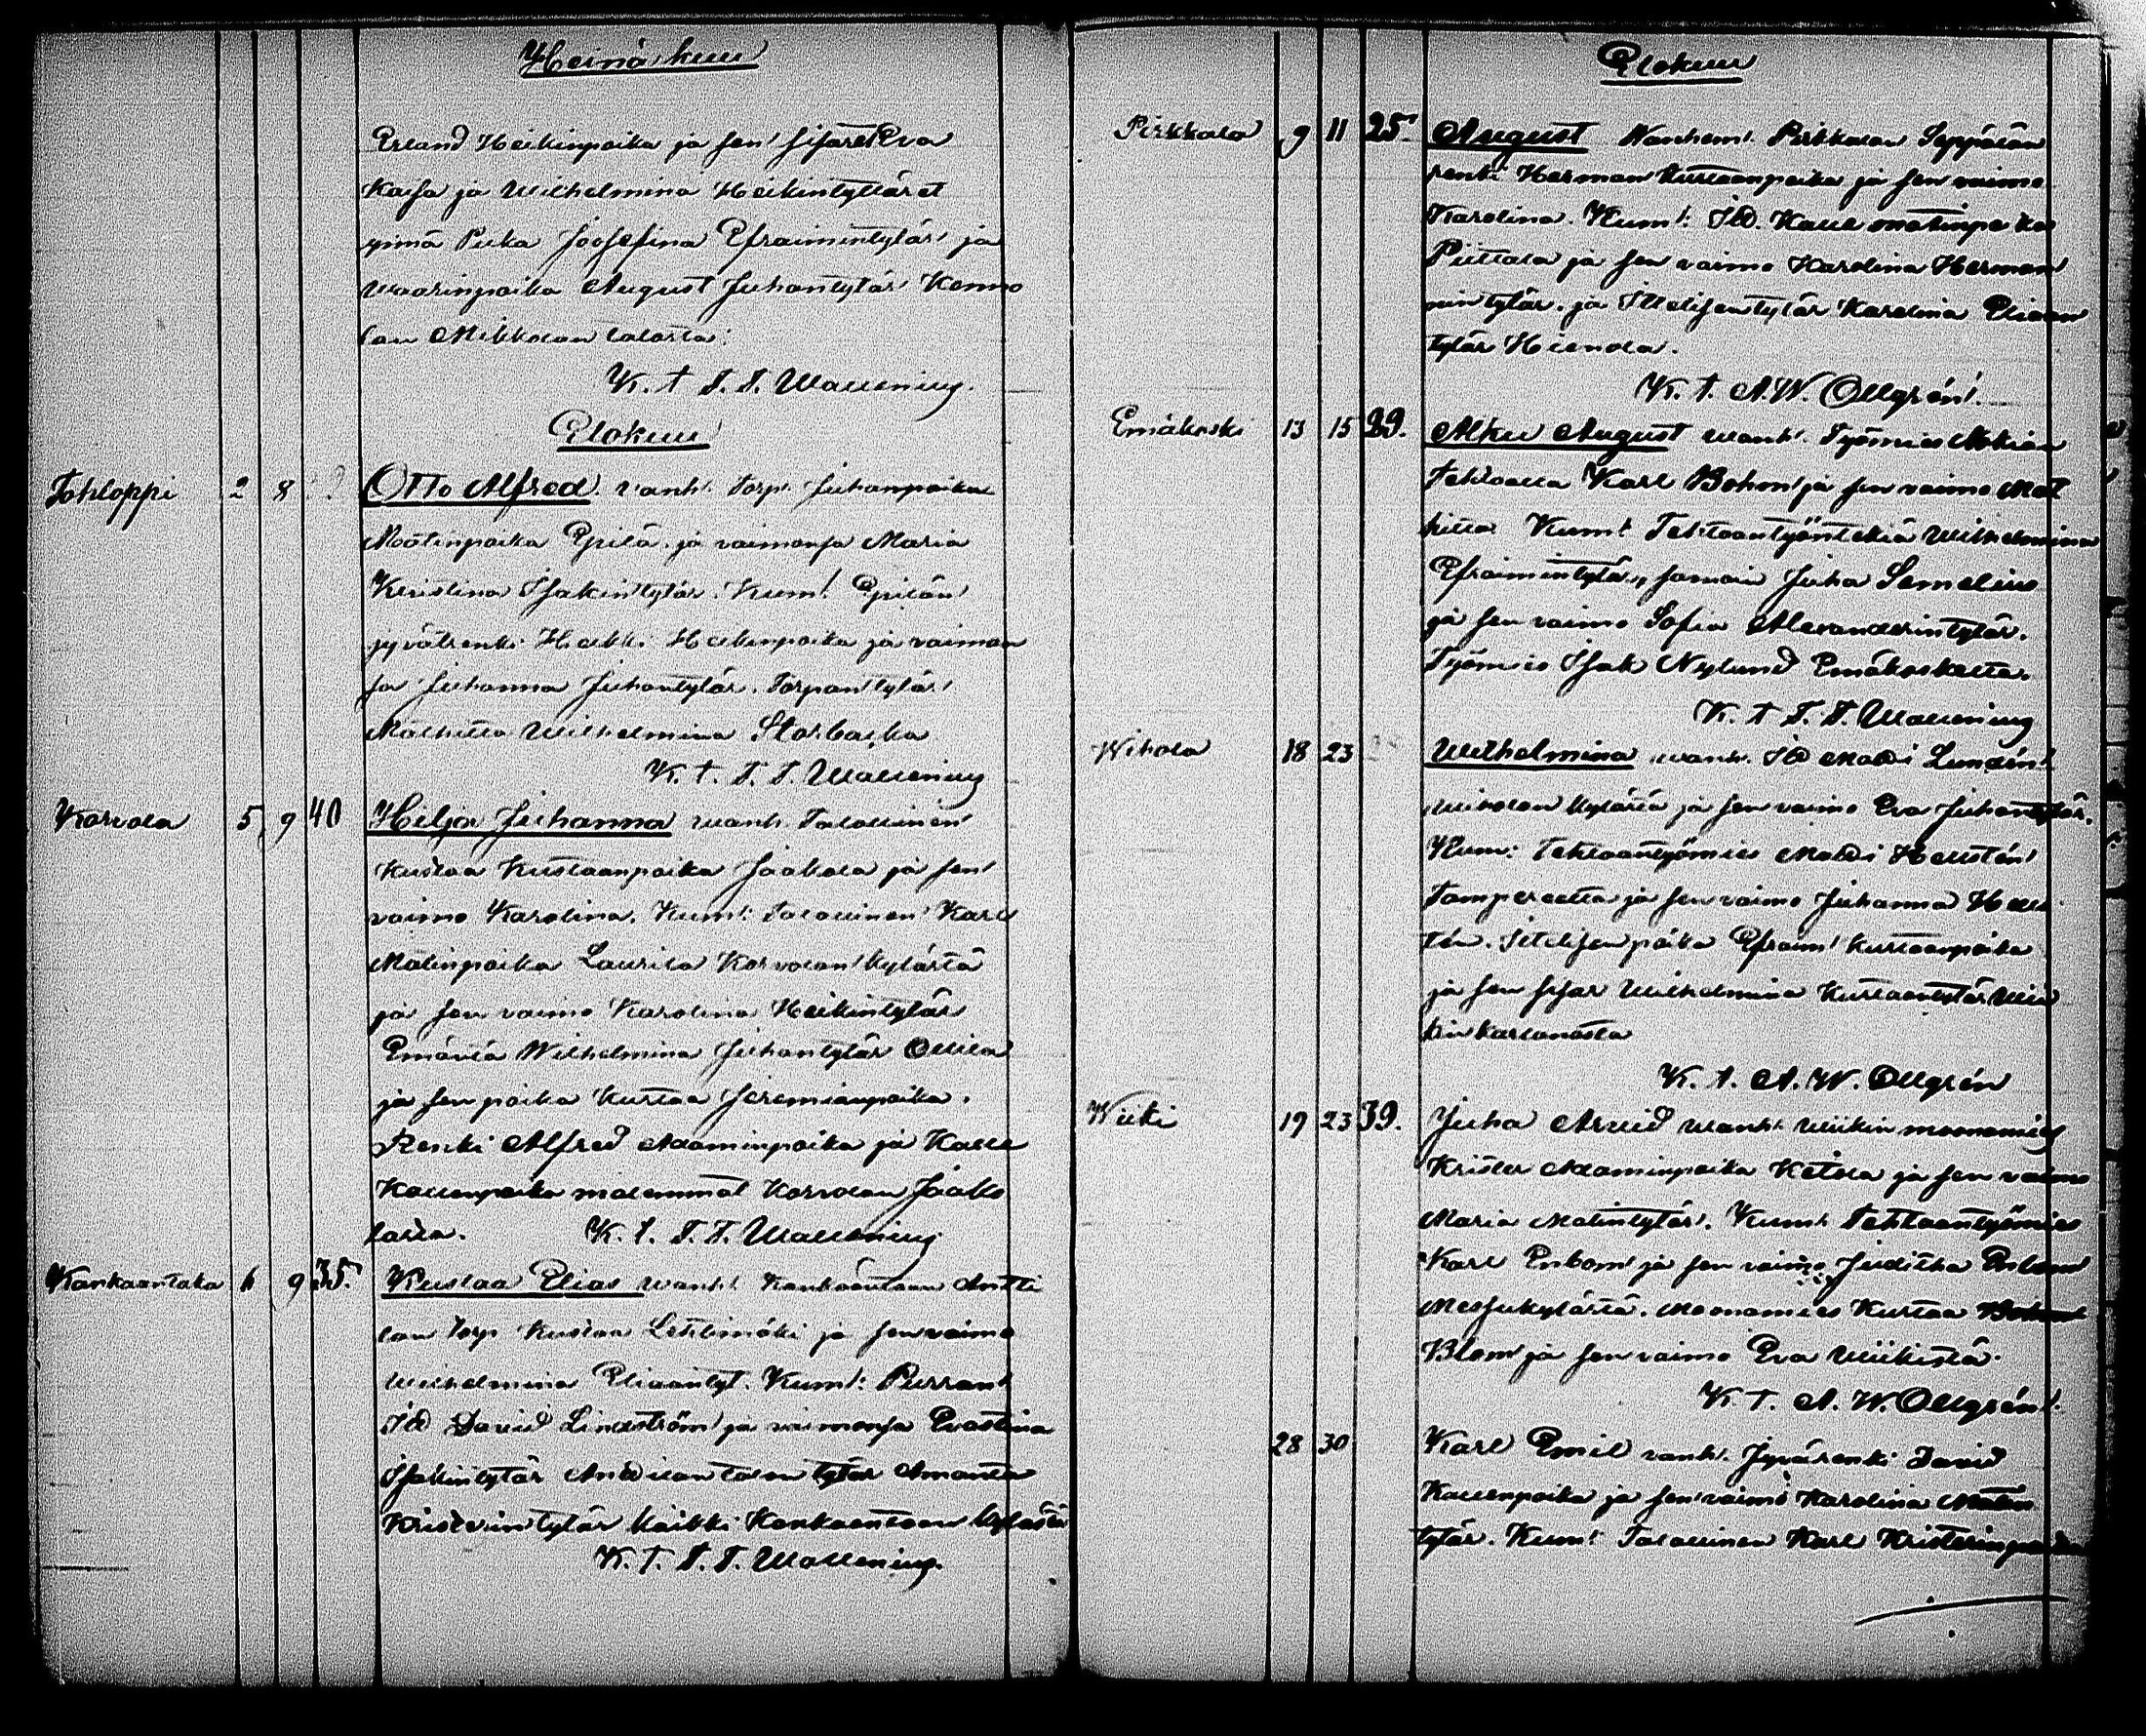 Heinäkuu
Erland Heikinpoika ja sen sisaret Eva
Kaisa ja Wilhelmina Heikintyttäret
piika Joosefina Efraimintytär ja
August Juhantytär Kenno
lan Mikkolan talosta.
K. t. F. F. Wallenius.
Elokuu
Tohloppi 2 8 Otto Alfred. vanh. torp. Juhanpoika
Epilä. ja vaimonsa Maria
Kristina Isakintytär. Kum. Epilän
jyvätrenki Heikki Heikinpoika ja vaimon
sa Juhanna Juhantytär. Torpantytär
Mathilta Wilhelmina Storbacka
K. t. F. F. Wallenius
Korvola 5 9 40 Hilja Juhanna wanh. Talollinen
Kustaa Kustaanpoika Jaakola ja sen
vaimo Karolina. Kum: Talollinen Karl
Matinpoika Laurila Korvolan kylästä
ja sen vaimo Karolina Heikintytär
Emäntä Wilhelmina Juhantytär Ollila
ja sen poika Kustaa Jeremianpoika.
Renki Alfred Adaminpoika ja Kalle
Kallenpoika molemmat Korvolan Jaako
lasta. K. t. F. F. Wallenius
Kankaantaka 6 9 35. Kustaa Elias wanh. Kankaantaan Antti
lan torp. Kustaa Lehtimäki ja sen vaimo
Wilhelmina Eliaantyt. Kum: Purran
Itl. David Lindström ja vaimonsa Evastina
Isakintytär Andilan talon tytär Amanta
Kristerintytär kaikki Kankaantaan kylästä
K. t. F. F. Wallenius.
Elokuu
Pirkkala 9 11 25. August Wanhem. Pirkkalan Seppälän
renki Herman Kustaanpoika ja sen vaimo
Karolina. Kum: Itl. Kalle Matinpoika
Piettala ja sen vaimo Karolina Herman
nintytär. ja Itellisentytär Karolina Eliaan
tytär
K. t. A. W. Ollgrén.
Emäkoski 13 15 29. Alku August wanh. Työmies Nokian
Tehtaalla Karl Bohm ja sen vaimo Mat
hilta Kum: Tehtaantyöntekiä Wilhelmina
Efraimintytär, Juha Semelius
ja sen vaimo Sofia Alexanderintytär.
Työmies Isak Nylund Emäkoskelta.
K. t. F. F. Wallenius
Wihola 18 23 Wilhelmina wanh. Itl. Matti Lundén
Wiholan kylästä ja sen vaimo Eva Juhantytär.
Kum: Tehtaantyömies Matti Hellstén
Tampereelta ja sen vaimo Juhanna Hells
tén. Itellisenpoika Efraim Kustaanpoika
ja sen sisar Wilhelmina Kustaantytär Wii
kin kartanosta
K. t. A. W. Ollgrén
Wiiki 19 23 39. Juha Arvid wanh. Wiikin moonamies
Krister Adaminpoika Ketola ja sen vaimo
Maria Matintytär. Kum: Tehtaantyömies
Karl Enbom ja sen vaimo Juditha Enbom
Messukylästä. Moonamies Kustaa
Blom ja sen vaimo Eva Wiikistä.
K. t. A. W. Ollgrén.
28 30 Karl Emil vanh. Jyvärenki David
Kallenpoika ja sen vaimo Karolina Matin
tytär. Kum: Talollinen Karl Kristerinpoika